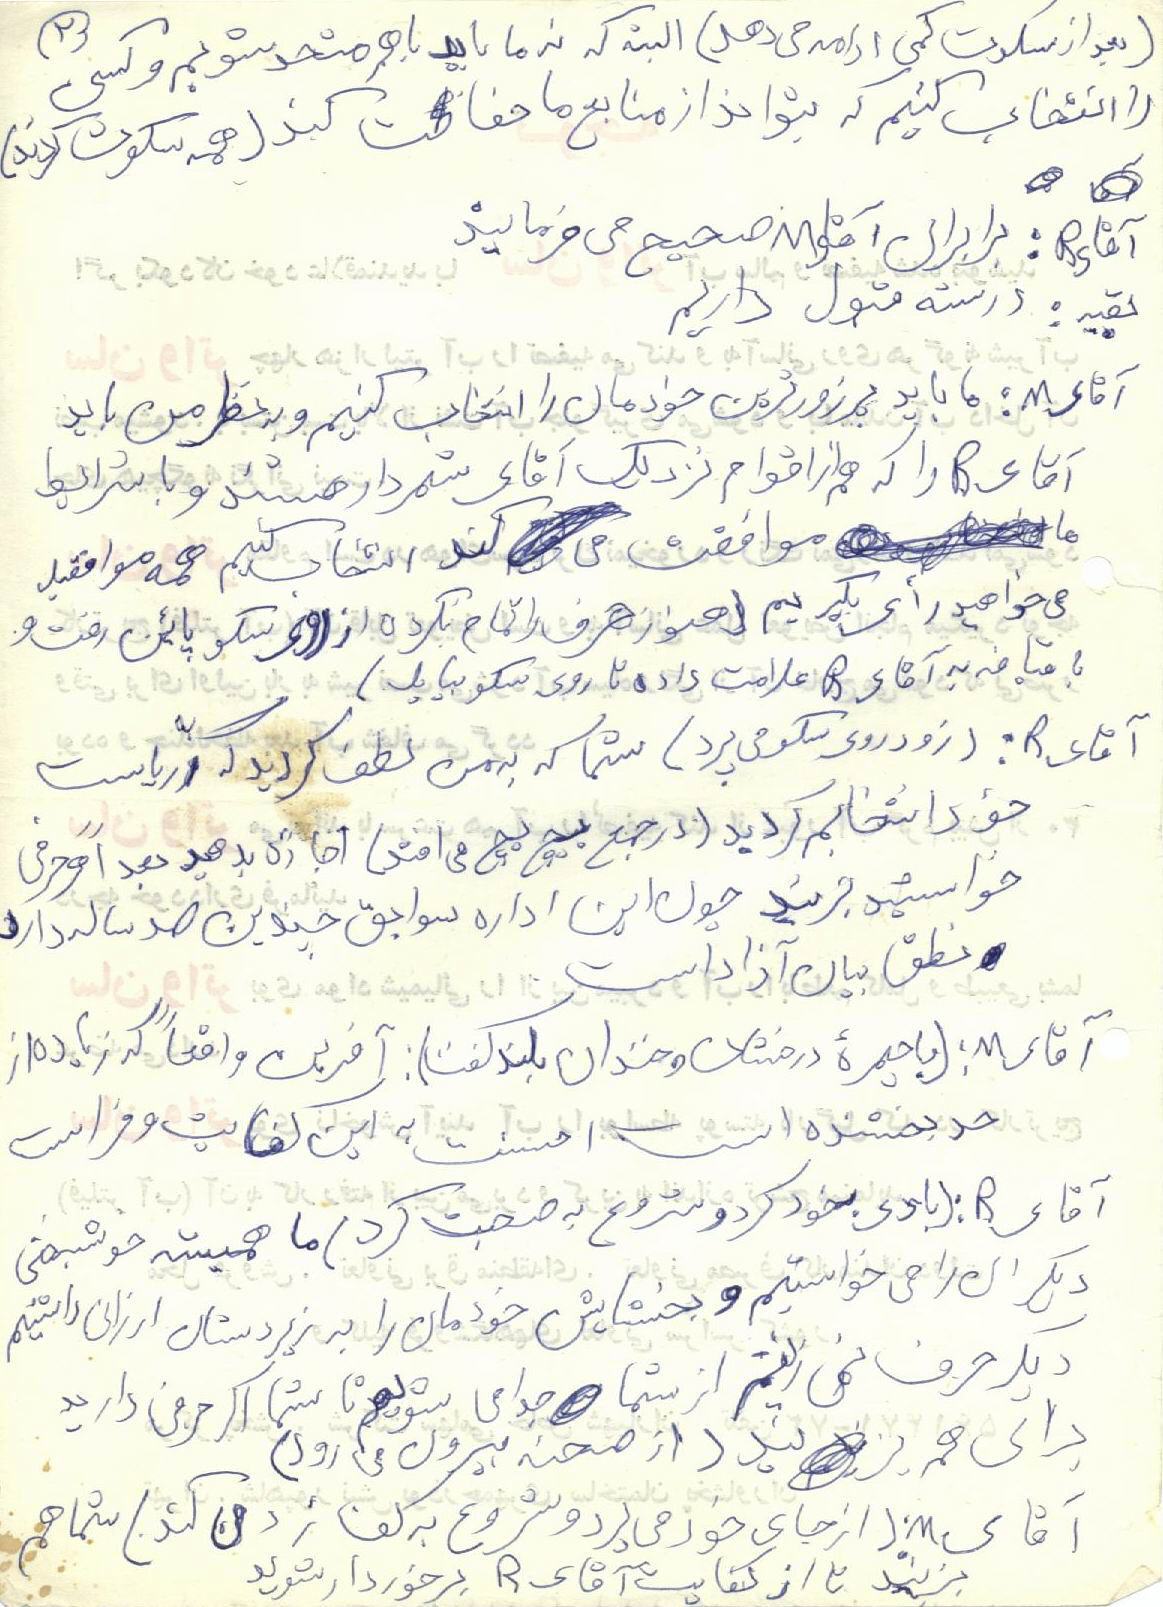 (۳)
(بعد از سکوت کمی ادامه می دهد) البته که نه ما باید باهم متحد شویم و کسی
را انتخاب کنیم که بتواند از منابع ما حفاظت کند (همه سکوت کردند)
آقای R: برابرای آقای M صحیح می فرمایند
بقیه: درسته قبول داریم
آقای M: ما باید پرزورترین خودمان را انتخاب کنیم و به نظر من باید
آقای R را که هم از اقوام نزدیک آقای شهردار هستند و با شرایط
ما موافقت می کند انتخاب کنیم همه موافقید
می خواهید رأی بگیریم (هنوز حرف را تمام نکرده از روی سکو پائین رفت و
با قیافه به آقای R علامت داده تا روی سکو بیاید)
آقای R: (زود روی سکو می پرد) شما که به من لطف کردید که به ریاست
خود انتخابم کردید (در جمع پچ پچ می افتد) اجازه بدهید بعداً حرفی
خواستید بزنید چون این اداره سوابق چندین صد ساله دارد
نطق بیان آزاد است
آقای M: (با چهرهٔ درخشان و خندان بلند گفت): آفرین واقعاً که زیاده از
حد بخشنده است احسنت به این کفایت و فراست
آقای R: (بادی بخود کرد و شروع به صحبت کرد) ما همیشه خوشبختی
دیگران را می خواستیم و بخشایش خودمان را به زیردستان ارزانی داشتیم
دیگر حرف نمی زنیم از شما جدا می شویم تا شما اگر حرفی دارید
برای هم بزنید (از صحنه بیرون می رود)
آقای M: (از جای خود می پرد و شروع به کف زدن می کند) شما هم
بزنید تا از کفایت آقای R برخوردار شوید